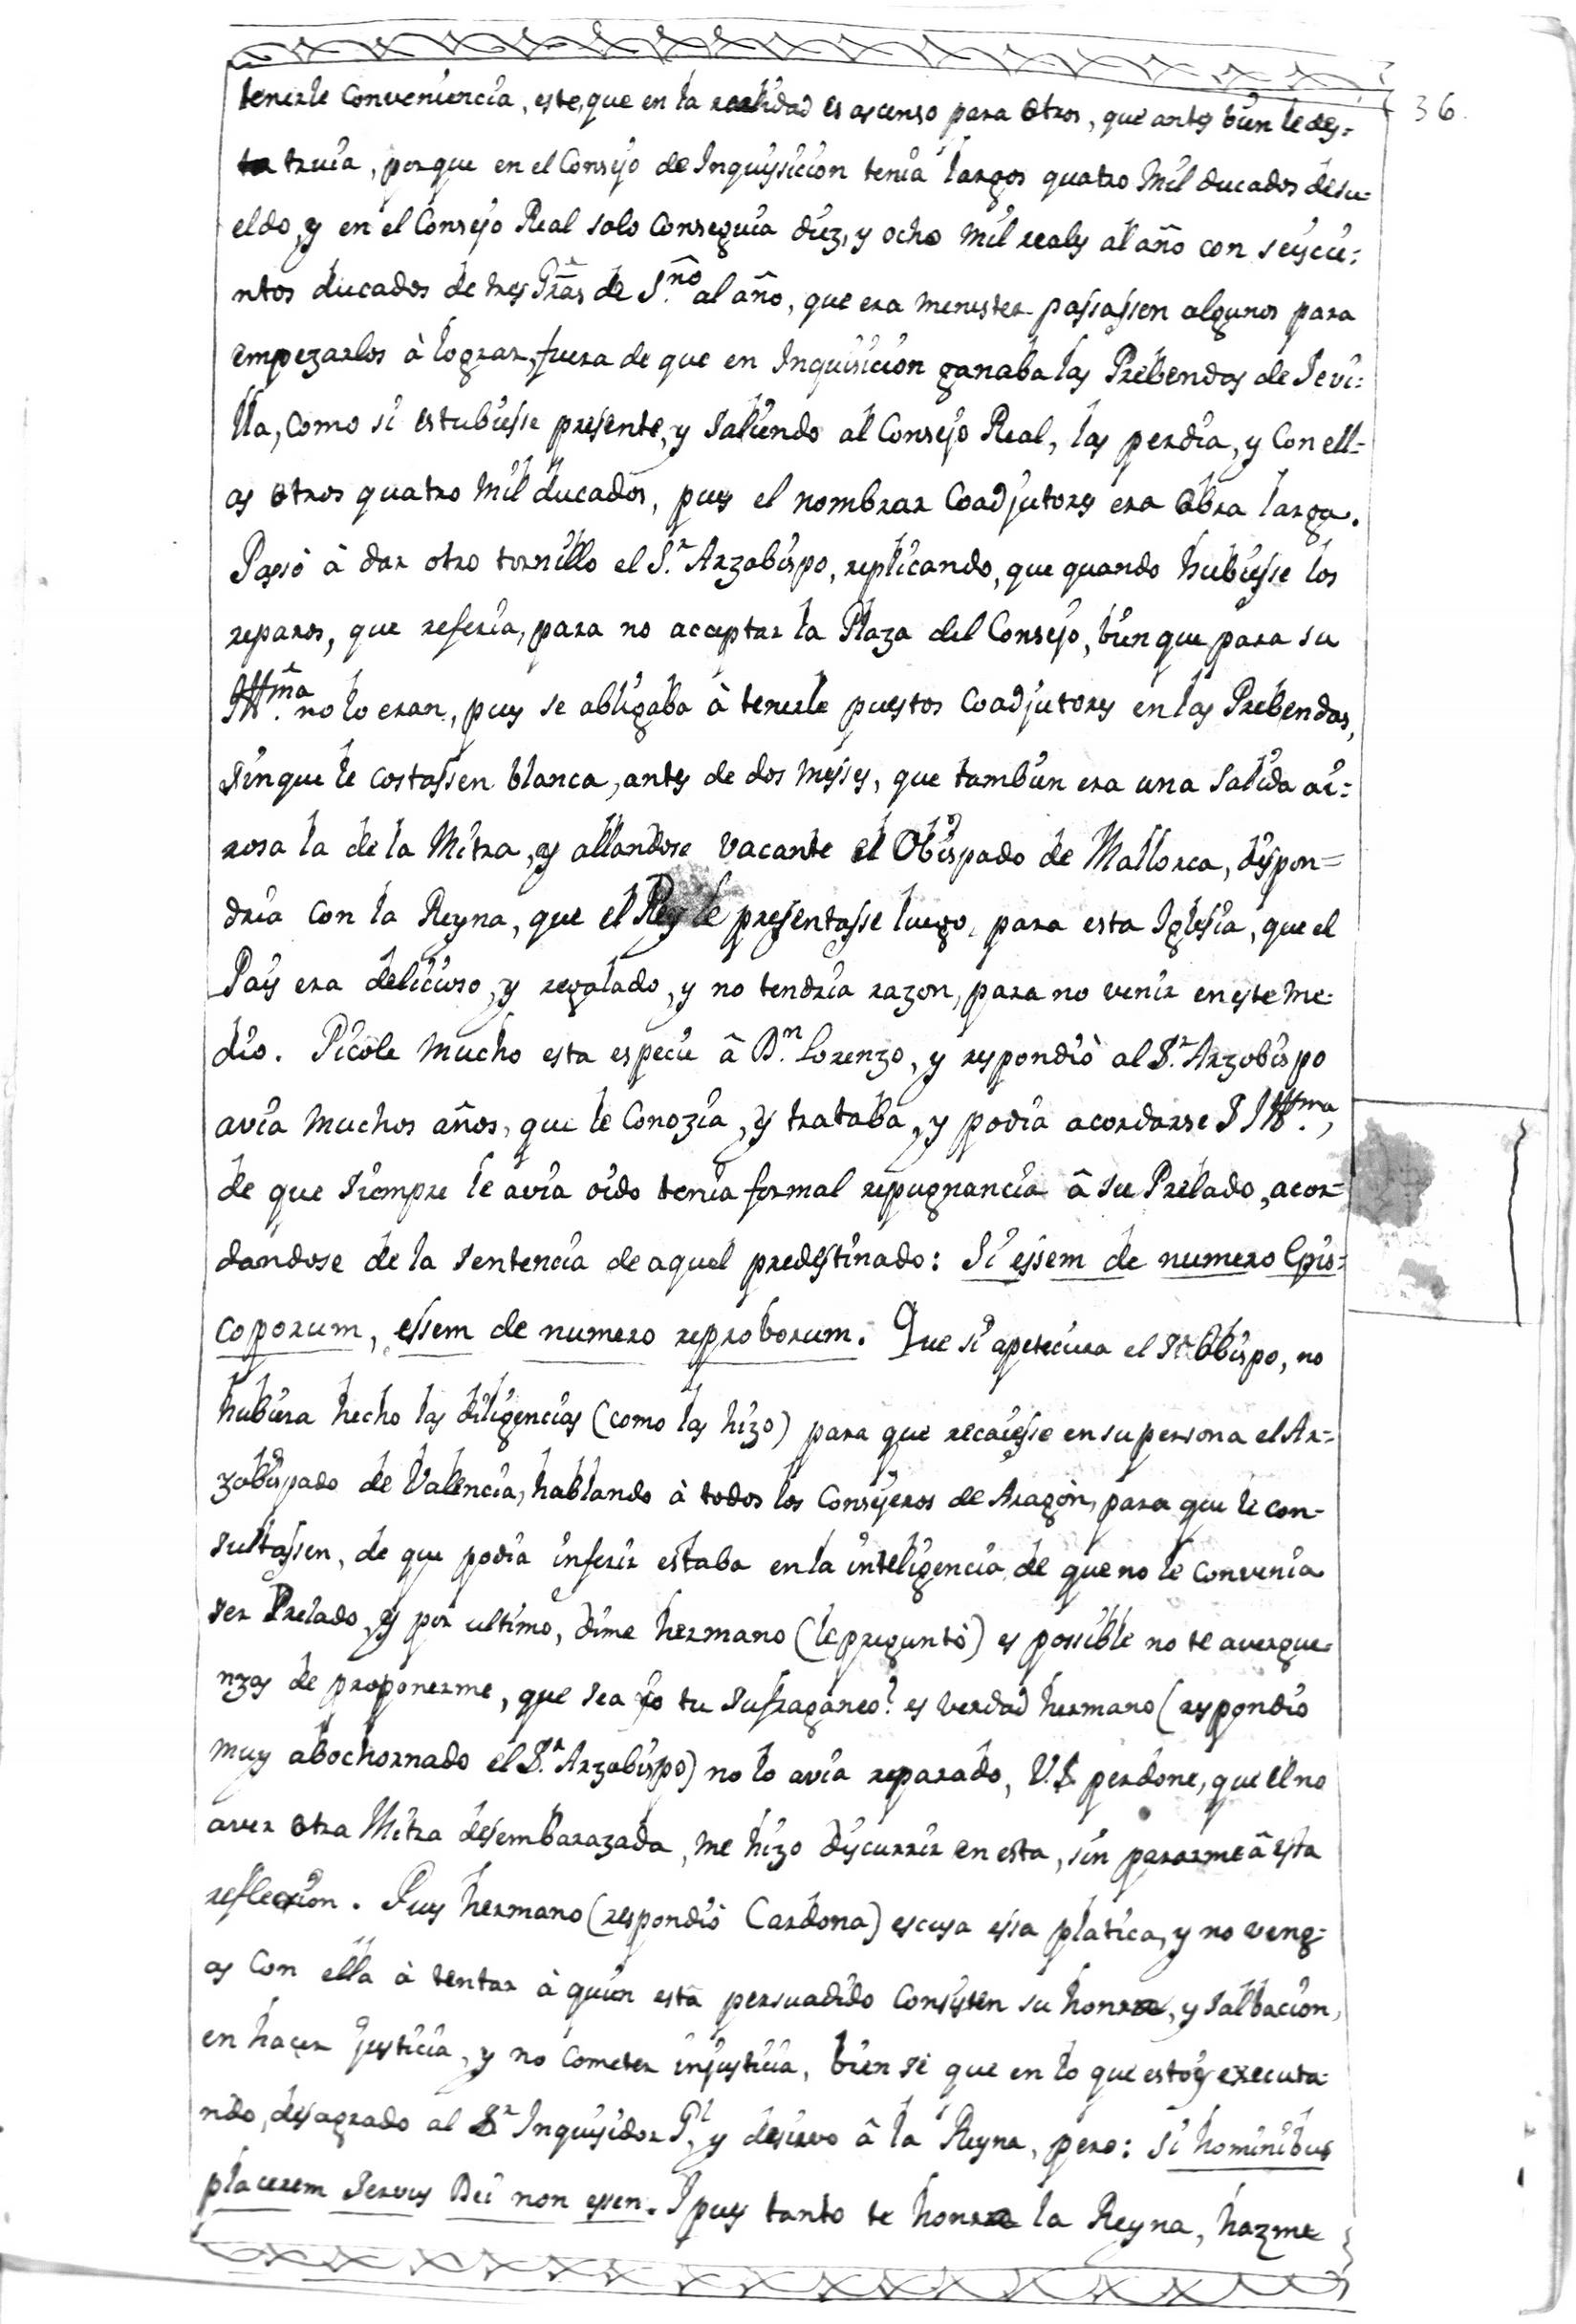 36.
tenerle conveniencia, este, que en la realidad es ascenso para otros, que antes bien le des=
truia, porque en el Consejo de Inquisicion tenia largos quatro mil ducados de su-
eldo, y en el Consejo Real solo conseguia diez, y ocho mil reales al año con seiscie=
ntos ducados de tres de al año, que era menester passassen algunos para
empezarlos à lograr, fuera de que en Inquisicion ganaba las Prebendas de Sevi=
lla, como si estubiesse presente, y saliendo al Consejo Real, las perdia, y con ell-
as otros quatro mil ducados, pues el nombrar Coadjutores era obra larga.
Passò à dar otro tornillo el S.r Arzobispo, replicando, que quando hubiesse los
reparos, que referia, para no acceptar la Plaza del Consejo, bien que para su
Illma. no lo eran, pues se obligaba à tenerle puestos Coadjutores en las Prebendas,
sin que le costassen blanca, antes de dos messes, que tambien era una salida ai=
rosa la de la Mitra, y allandose vacante el Obispado de Mallorca, dispon=
dria con la Reyna, que el Rey le presentasse luego, para esta Iglesia, que el
Pais era delicioso, y regalado, y no tendria razon, para no venir en este me-
dio. Picole mucho esta especie â D.n Lorenzo, y respondiò al S.r Arzobispo
avia muchos años, que le conozia, y trataba, y podia acordarse S Illma.,
de que siempre le avia oido tenia formal repugnancia â su Prelado, acor=
dandose de la sentencia de aquel predestinado: Si essem de numero Epis=
coporum, essem de numero reproborum. Que si apeteciera el ser Obispo, no
hubiera hecho las diligencias (como las hizo) para que recaiesse en su persona el Ar=
zobispado de Valencia, hablando à todos los Consejeros de Aragòn, para que le con-
sultassen, de que podia inferir estaba en la inteligencia de que no le convenia
ser Prelado, y por ultimo, dime hermano (le preguntò) es possible no te avergue=
nzas de proponerme, que sea yo tu sufraganeo? es verdad hermano (respondio
muy abochornado el S.r Arzobispo) no lo avia reparado, V.S. perdone, que el no
aver otra Mitra desembarazada, me hizo discurrir en esta, sin pararme â esta
reflexion. Pues hermano (respondiò Cardona) escusa essa platica, y no veng=
as con ella à tentar à quien està persuadido consisten su honra, y salbacion,
en hacer justicia, y no cometer injusticia, bien sè que en lo que estoy executa-
ndo, desagrado al Sr Inquisidor Gl, y desirvo â la Reyna, pero: si hominibus
placerem servus Dei non essem. I pues tanto te honra la Reyna, hazme